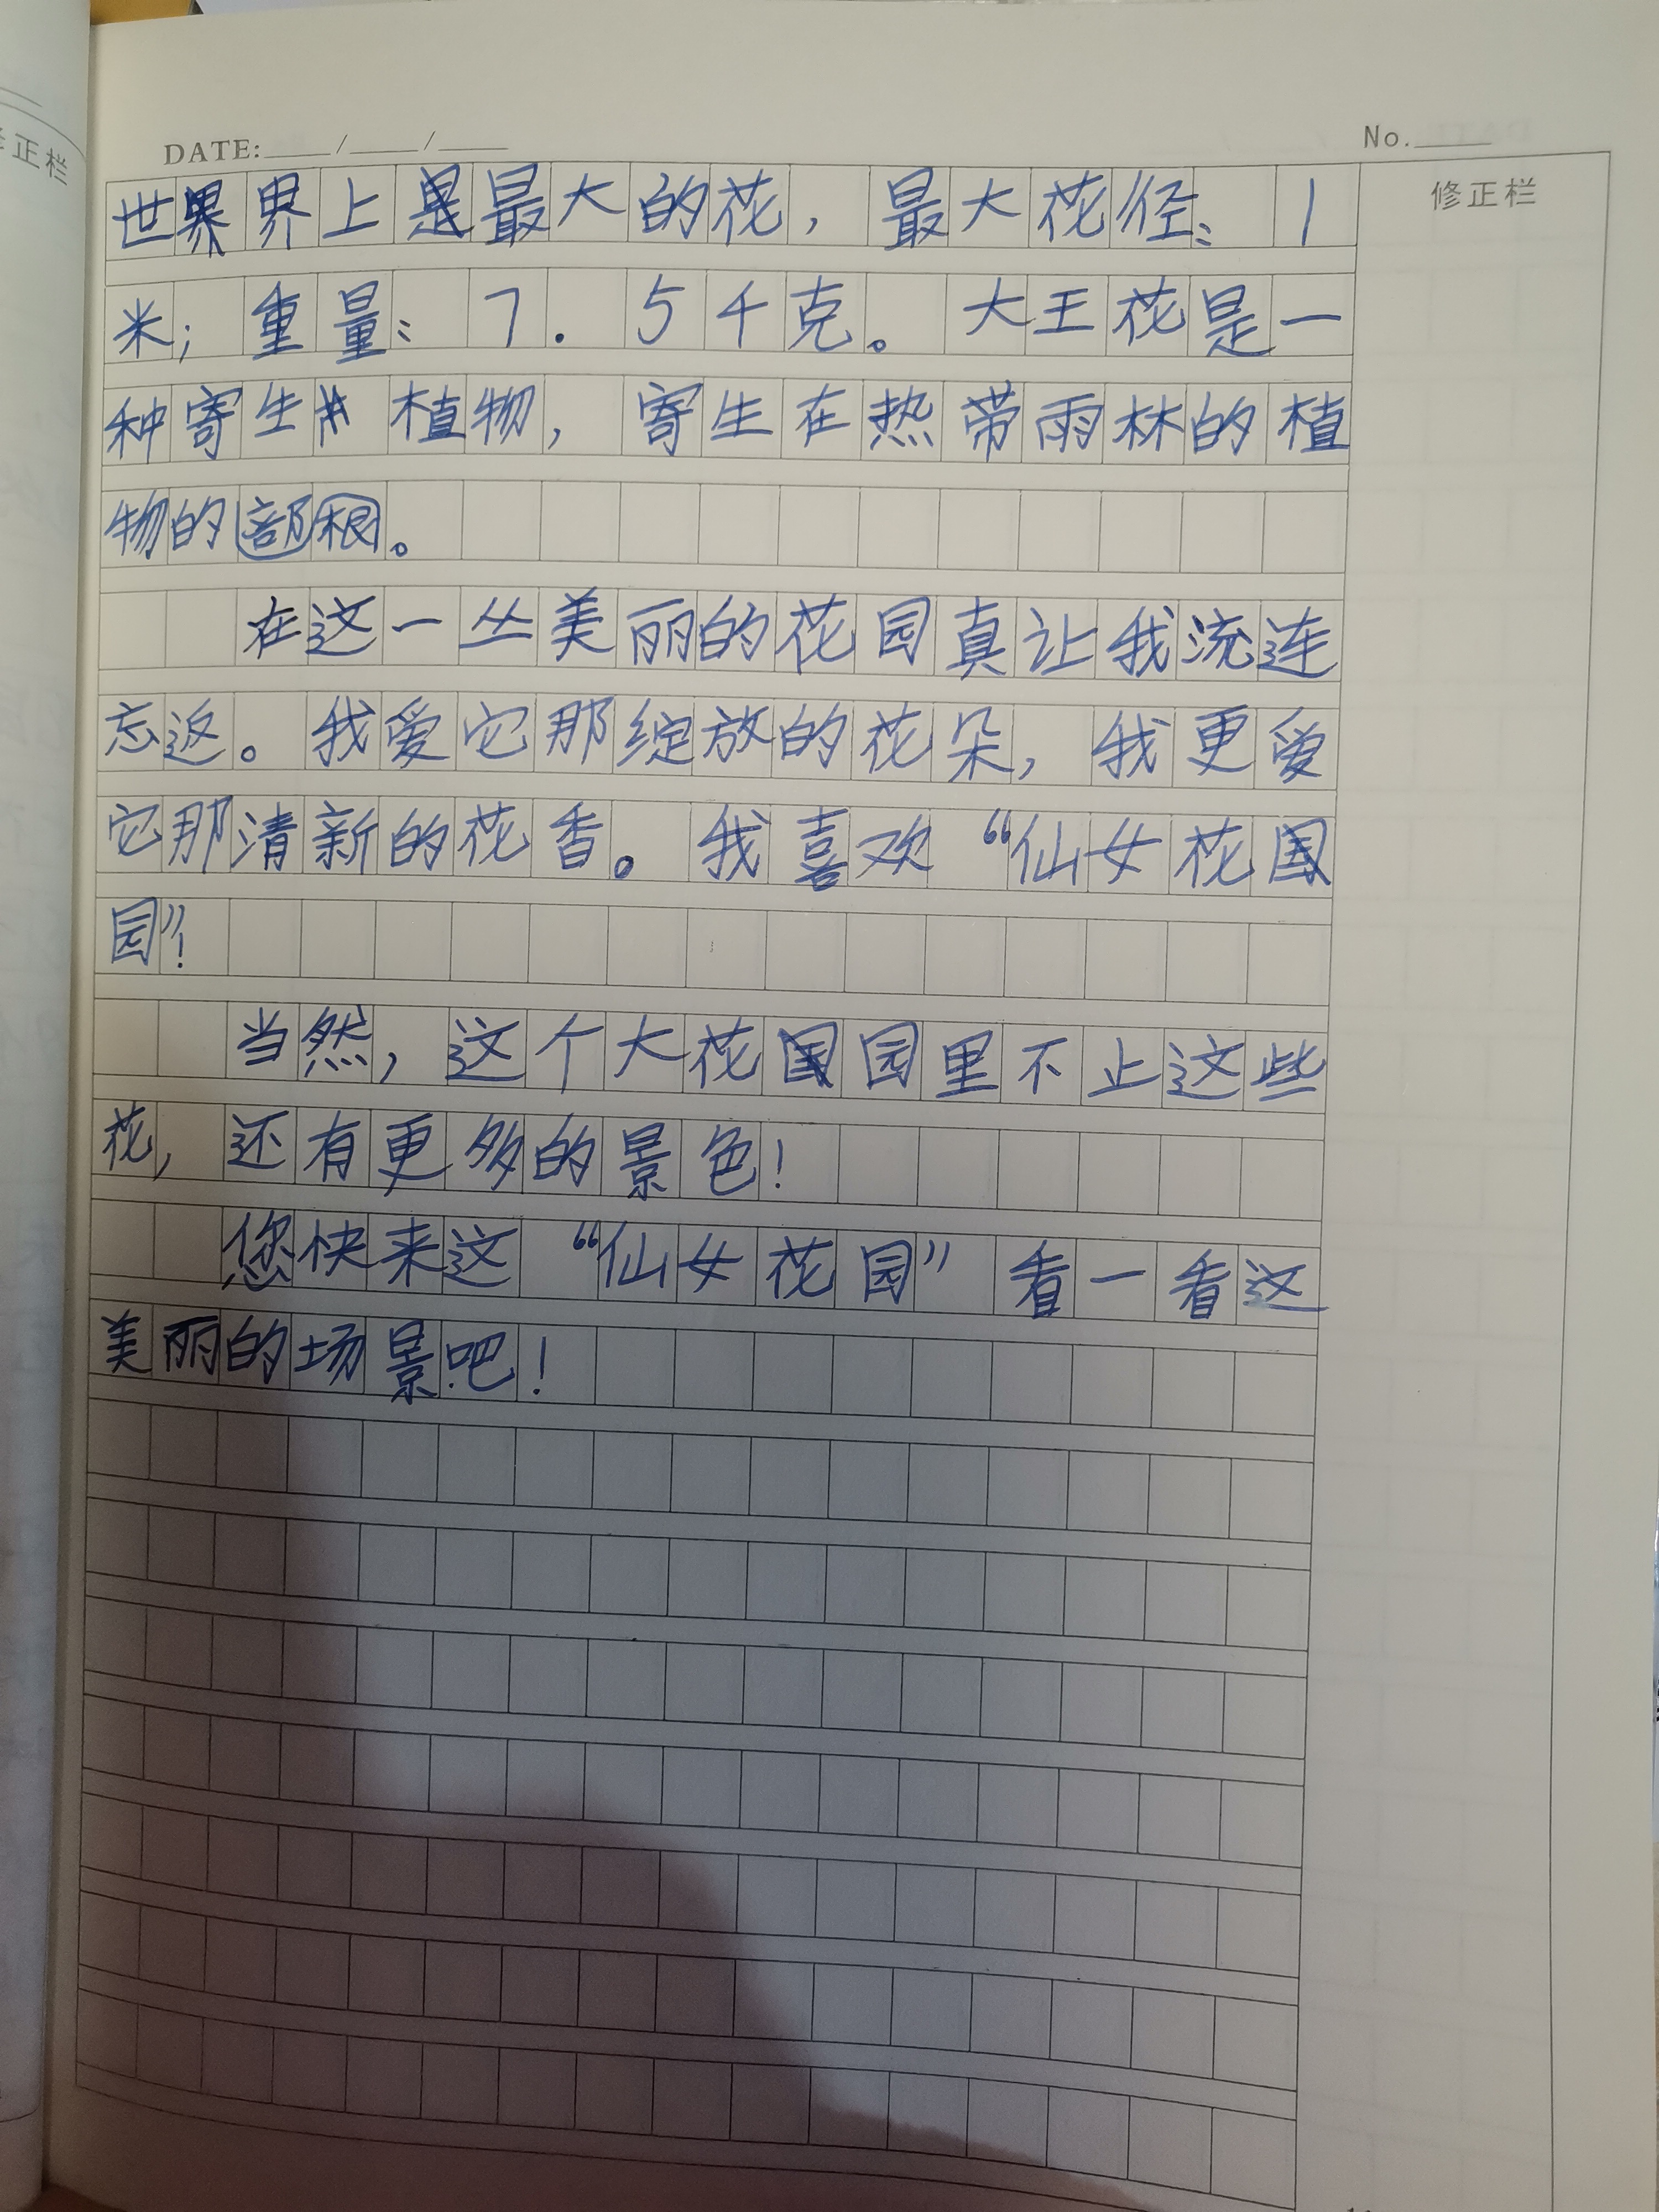 修正栏
DATE: / /
No.
修正栏
世界上最大的花，最大花径：1
米；重量：7.5千克。大王花是一
种寄生植物，寄生在热带雨林的植
物的部根。
在这一丛美丽的花园真让我流连
忘返。我爱它那绽放的花朵，我更爱
它那清新的花香。我喜欢“仙女花
园”！
当然，这个大花园里不止这些
花，还有更多的景色！
您快来这“仙女花园”看一看这
美丽的场景吧！